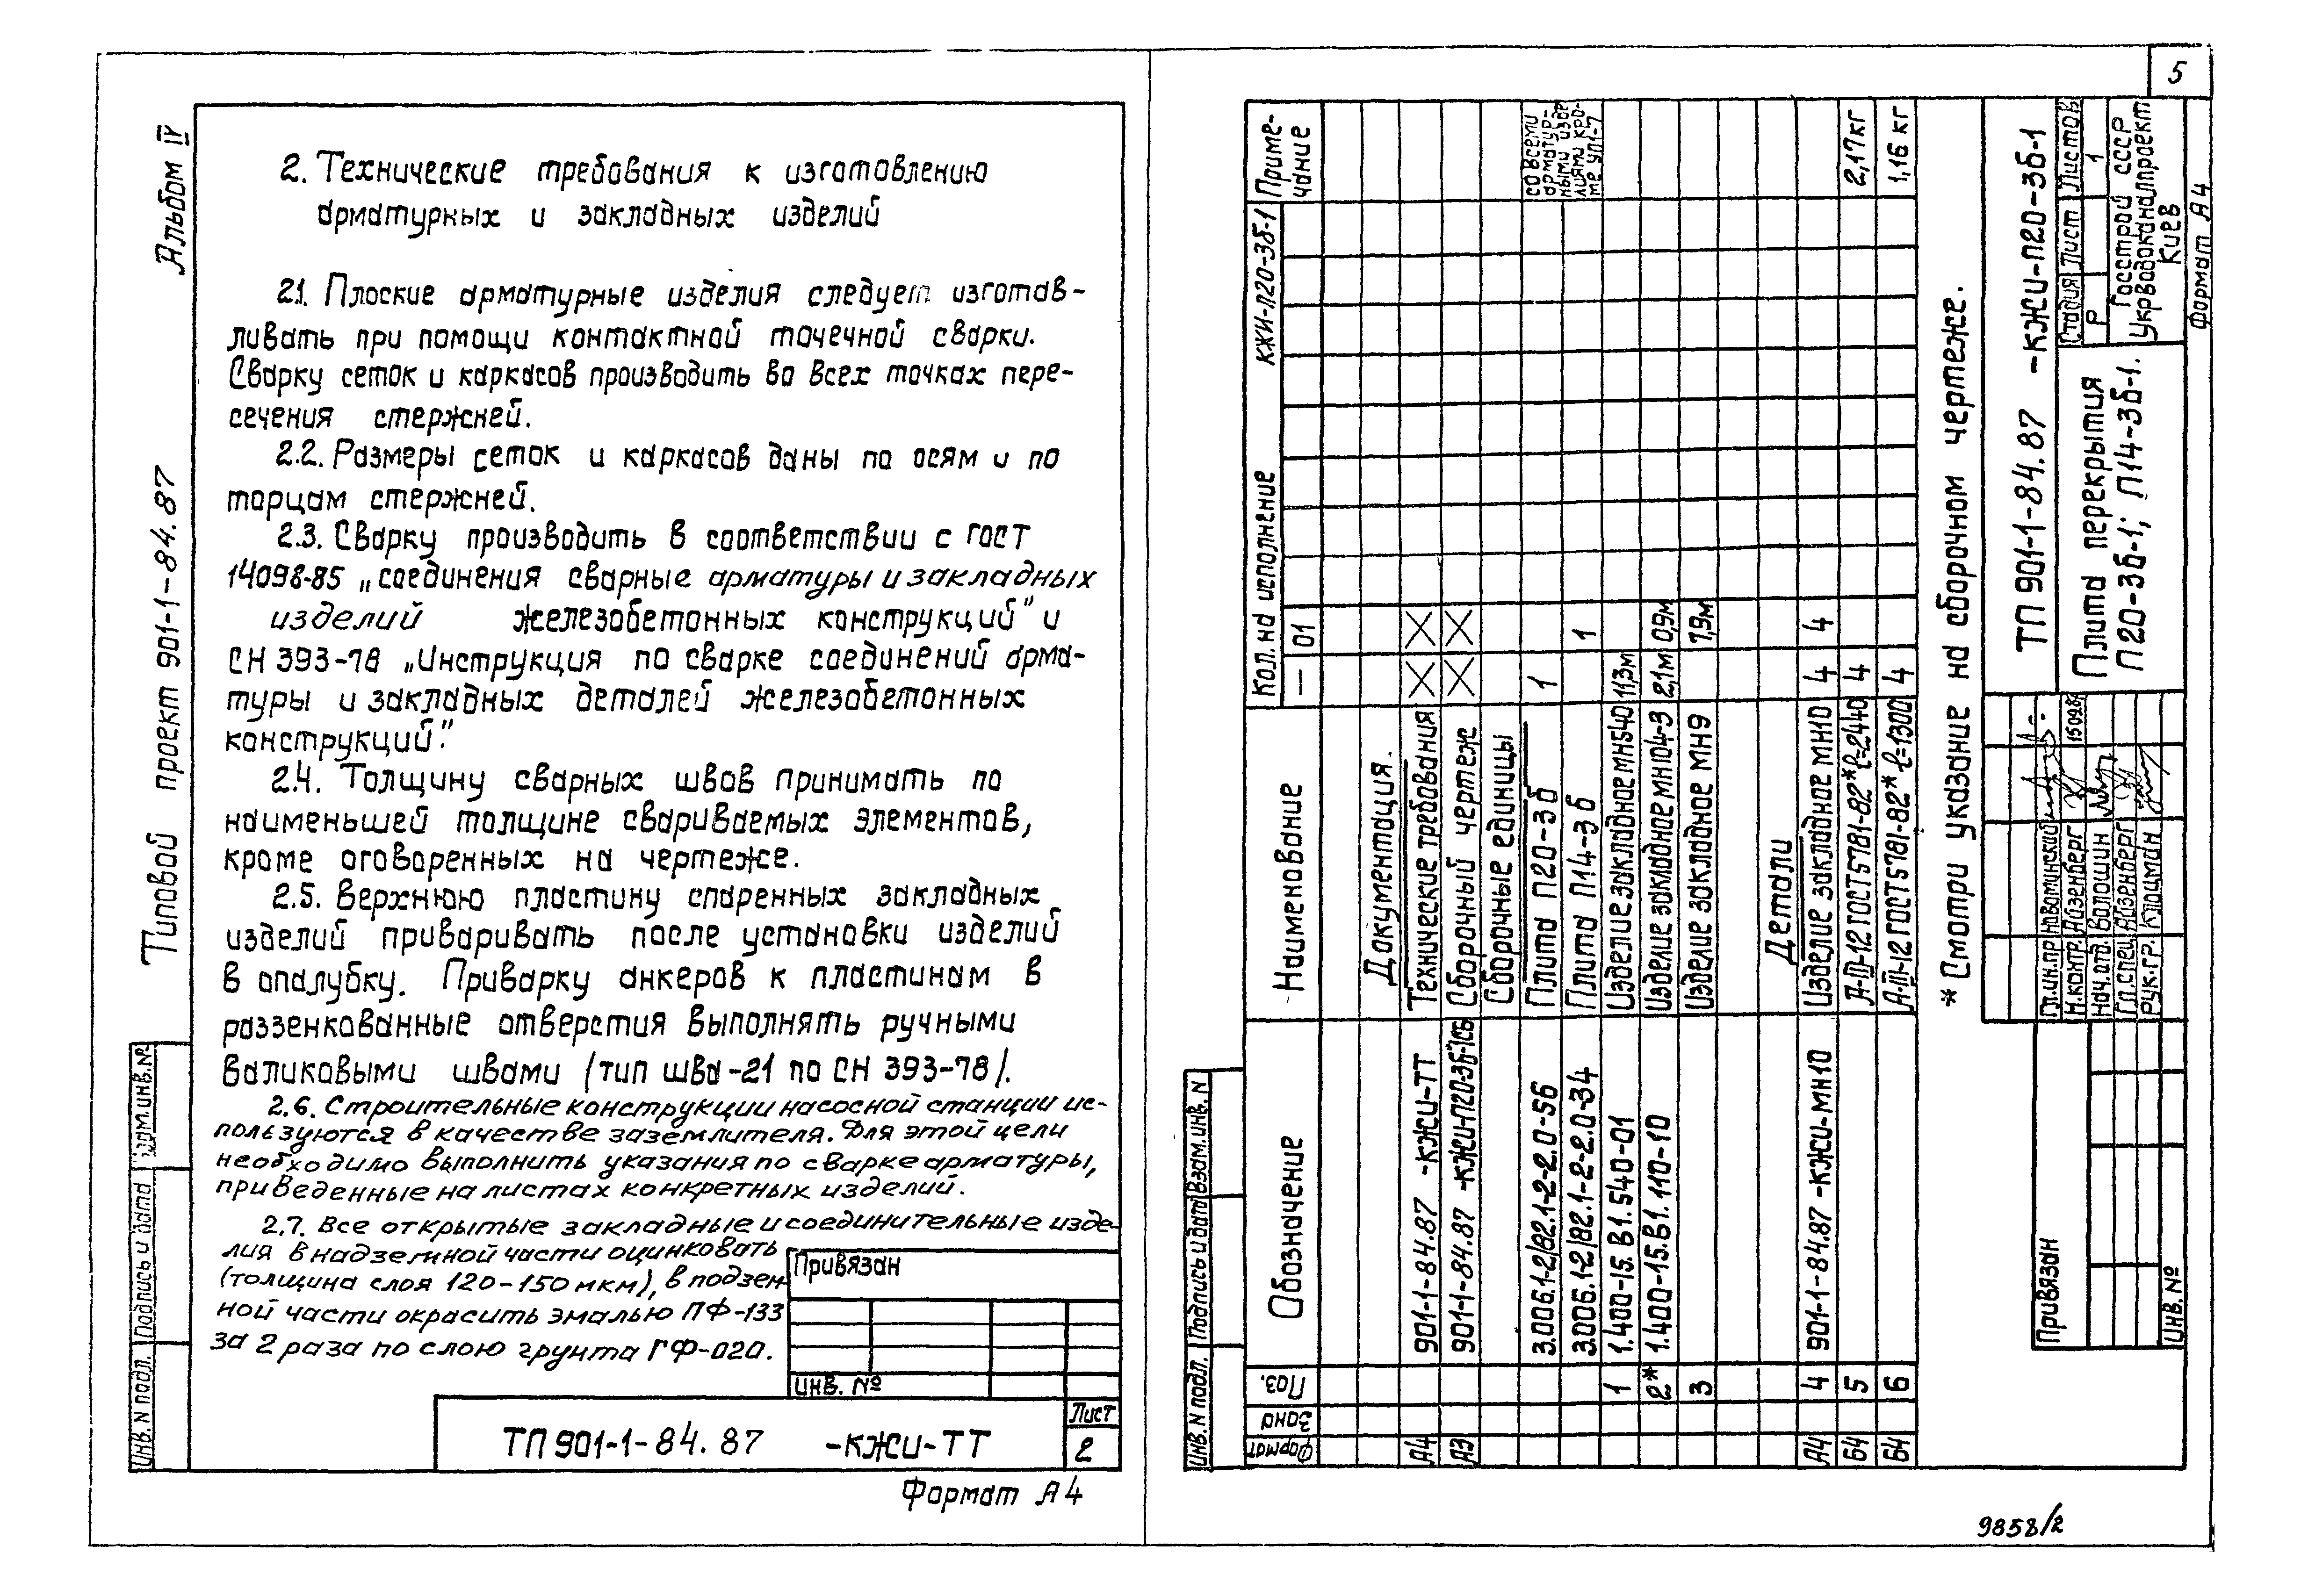 5
Альбом IV
Типовой проект 901-1-84.87
2. Технические требования к изготовлению
арматурных и закладных изделий
2.1. Плоские арматурные изделия следует изготав-
ливать при помощи контактной точечной сварки.
Сварку сеток и каркасов производить во всех точках пере-
сечения стержней.
2.2. Размеры сеток и каркасов даны по осям и по
торцам стержней.
2.3. Сварку производить в соответствии с ГОСТ
14098-85 „соединения сварные арматуры и закладных
изделий железобетонных конструкций" и
СН 393-78 „Инструкция по сварке соединений арма-
туры и закладных деталей железобетонных
конструкций".
2.4. Толщину сварных швов принимать по
наименьшей толщине свариваемых элементов,
кроме оговоренных на чертеже.
2.5. Верхнюю пластину спаренных закладных
изделий приваривать после установки изделий
в опалубку. Приварку анкеров к пластинам в
раззенкованные отверстия выполнять ручными
валиковыми швами (тип шва-21 по СН 393-78).
2.6. Строительные конструкции насосной станции ис-
пользуются в качестве заземлителя. Для этой цели
необходимо выполнить указания по сварке арматуры,
приведенные на листах конкретных изделий.
2.7. Все открытые закладные и соединительные изде-
лия в надземной части оцинковать
(толщина слоя 120-150 мкм), в подзем-
ной части окрасить эмалью ПФ-133
за 2 раза по слою грунта ГФ-020.
Привязан
Инв. №
ТП 901-1-84.87 -КЖИ-ТТ
Лист
2
Формат А4
Инв. N подл. Подпись и дата Взам.инв.№
Формат Зона Поз. Обозначение Наименование Кол. на исполнение КЖИ-П20-3б-1 Приме-
чание
— 01
Документация
А4 901-1-84.87 -КЖИ-ТТ Технические требования X X
А3 901-1-84.87 -КЖИ-П20-3б-1СБ Сборочный чертеж X X
Сборочные единицы
3.006.1-2/82.1-2-2.0-56 Плита П20-3б 1 со всеми
арматур-
ными изде
лиями кро-
ме УП1-7
3.006.1-2/82.1-2-2.0-34 Плита П14-3б 1
1 1.400-15.В1.540-01 Изделие закладное МН540 11,3м
2* 1.400-15.В1.110-10 Изделие закладное МН104-3 2,1м 0,9м
3 Изделие закладное МН9 7,9м
Детали
А4 4 901-1-84.87 -КЖИ-МН10 Изделие закладное МН10 4 4
Б4 5 А-III-12 ГОСТ 5781-82* ℓ=2440 4 2,17кг
Б4 6 А-III-12 ГОСТ 5781-82* ℓ=1300 4 1,16 кг
* Смотри указание на сборочном чертеже.
ТП 901-1-84.87 -КЖИ-П20-3б-1
Гл.ин.пр
Н.контр. Айзенберг 15.09.8
Нач.отд. Волошин
Гл.спец. Айзенберг
Рук.гр. Клоцман
Плита перекрытия
П20-3б-1; П14-3б-1.
Стадия Лист Листов
Р 1
Госстрой СССР
Укрводоканалпроект
Киев
Формат А4
Привязан
Инв. №
Инв. N подл. Подпись и дата Взам.инв. N
9858/2